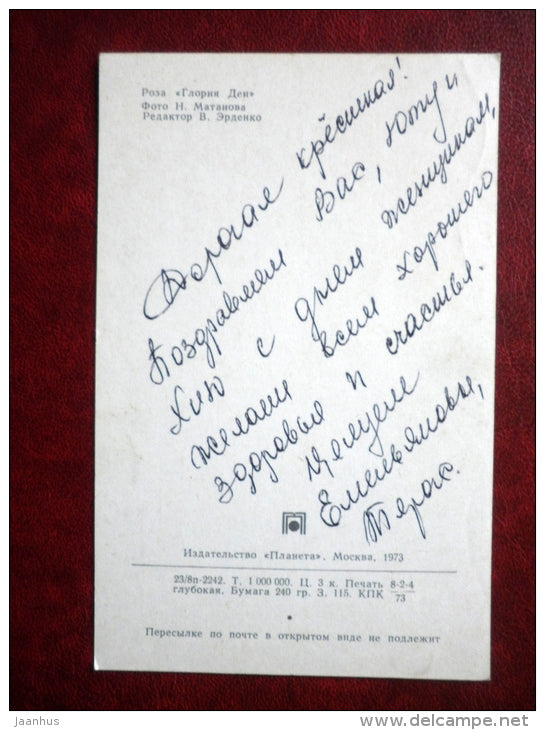 Роза «Глория Ден»
Фото Н. Матанова
Редактор В. Эрденко
Дорогая крёсшная!
Поздравляем Вас, Юту и
Хию с днем женщинам,
желаем всем хорошего
здоровья и счастья.
Целуем
Емельяновы,
Терас.
Издательство «Планета». Москва, 1973
23/8п-2242. Т. 1 000 000. Ц. 3 к. Печать
глубокая. Бумага 240 гр. З. 115. КПК
8-2-4
73
Пересылке по почте в открытом виде не подлежит
jaanhus
www.delcampe.net